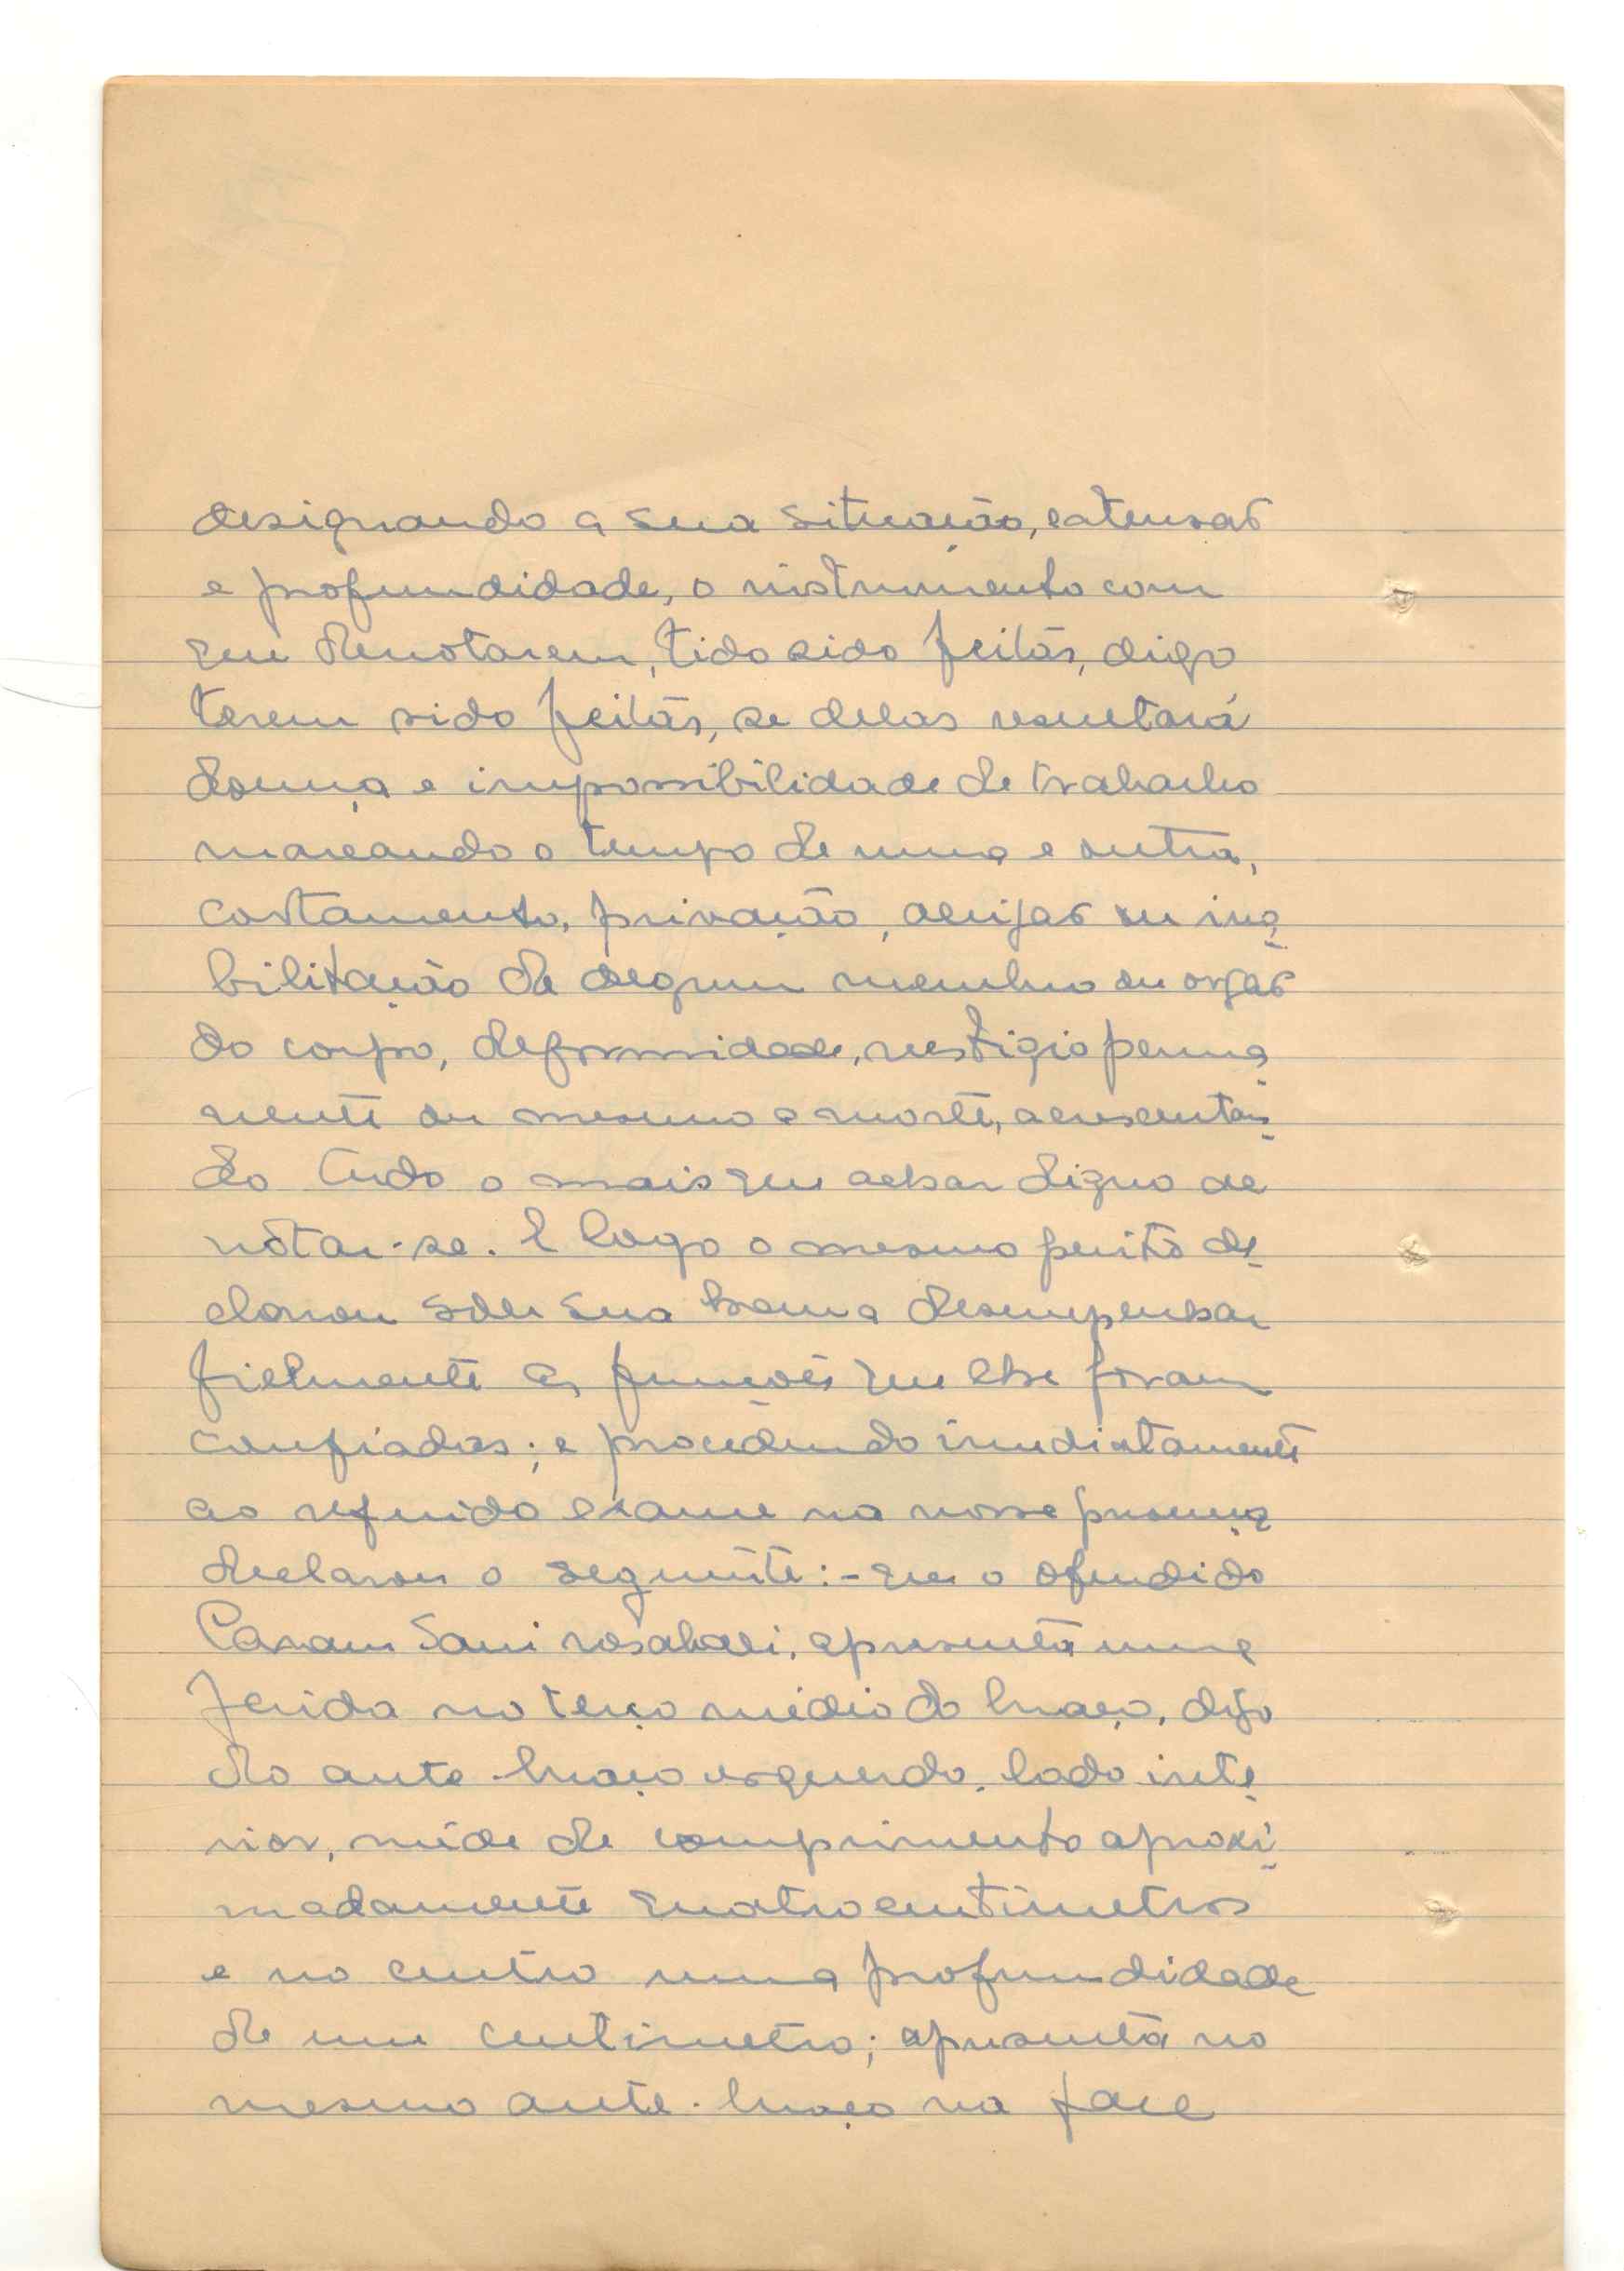 designando a sua situação, extensão
e profundidade, o instrumento com
que denotarem, tido sido feitas, digo
terem sido feitas, se delas resultará
doença e impossibilidade de trabalho
marcando o tempo de uma e outra,
cortamento, privação, aleijão ou ina
bilitação de algum membro ou orgão
do corpo, deformidade, vestigio perma
nente ou mesmo a morte, acrescentan
do tudo o mais que achar digno de
notar-se. E logo o mesmo perito de
clarou sob sua honra desempenhar
fielmente as funções que lhe foram
confiadas; e procedendo imediatamente
ao referido exame na nossa presença
declarou o seguinte:- que o ofendido
Sami, apresenta uma
ferida no terço médio do braço, digo
do ante-braço esquerdo, lado inte
rior, mide de comprimento aproxi
madamente quatro centimetros
e no centro uma profundidade
de um centimetro; apresenta no
mesmo ante-braço na face